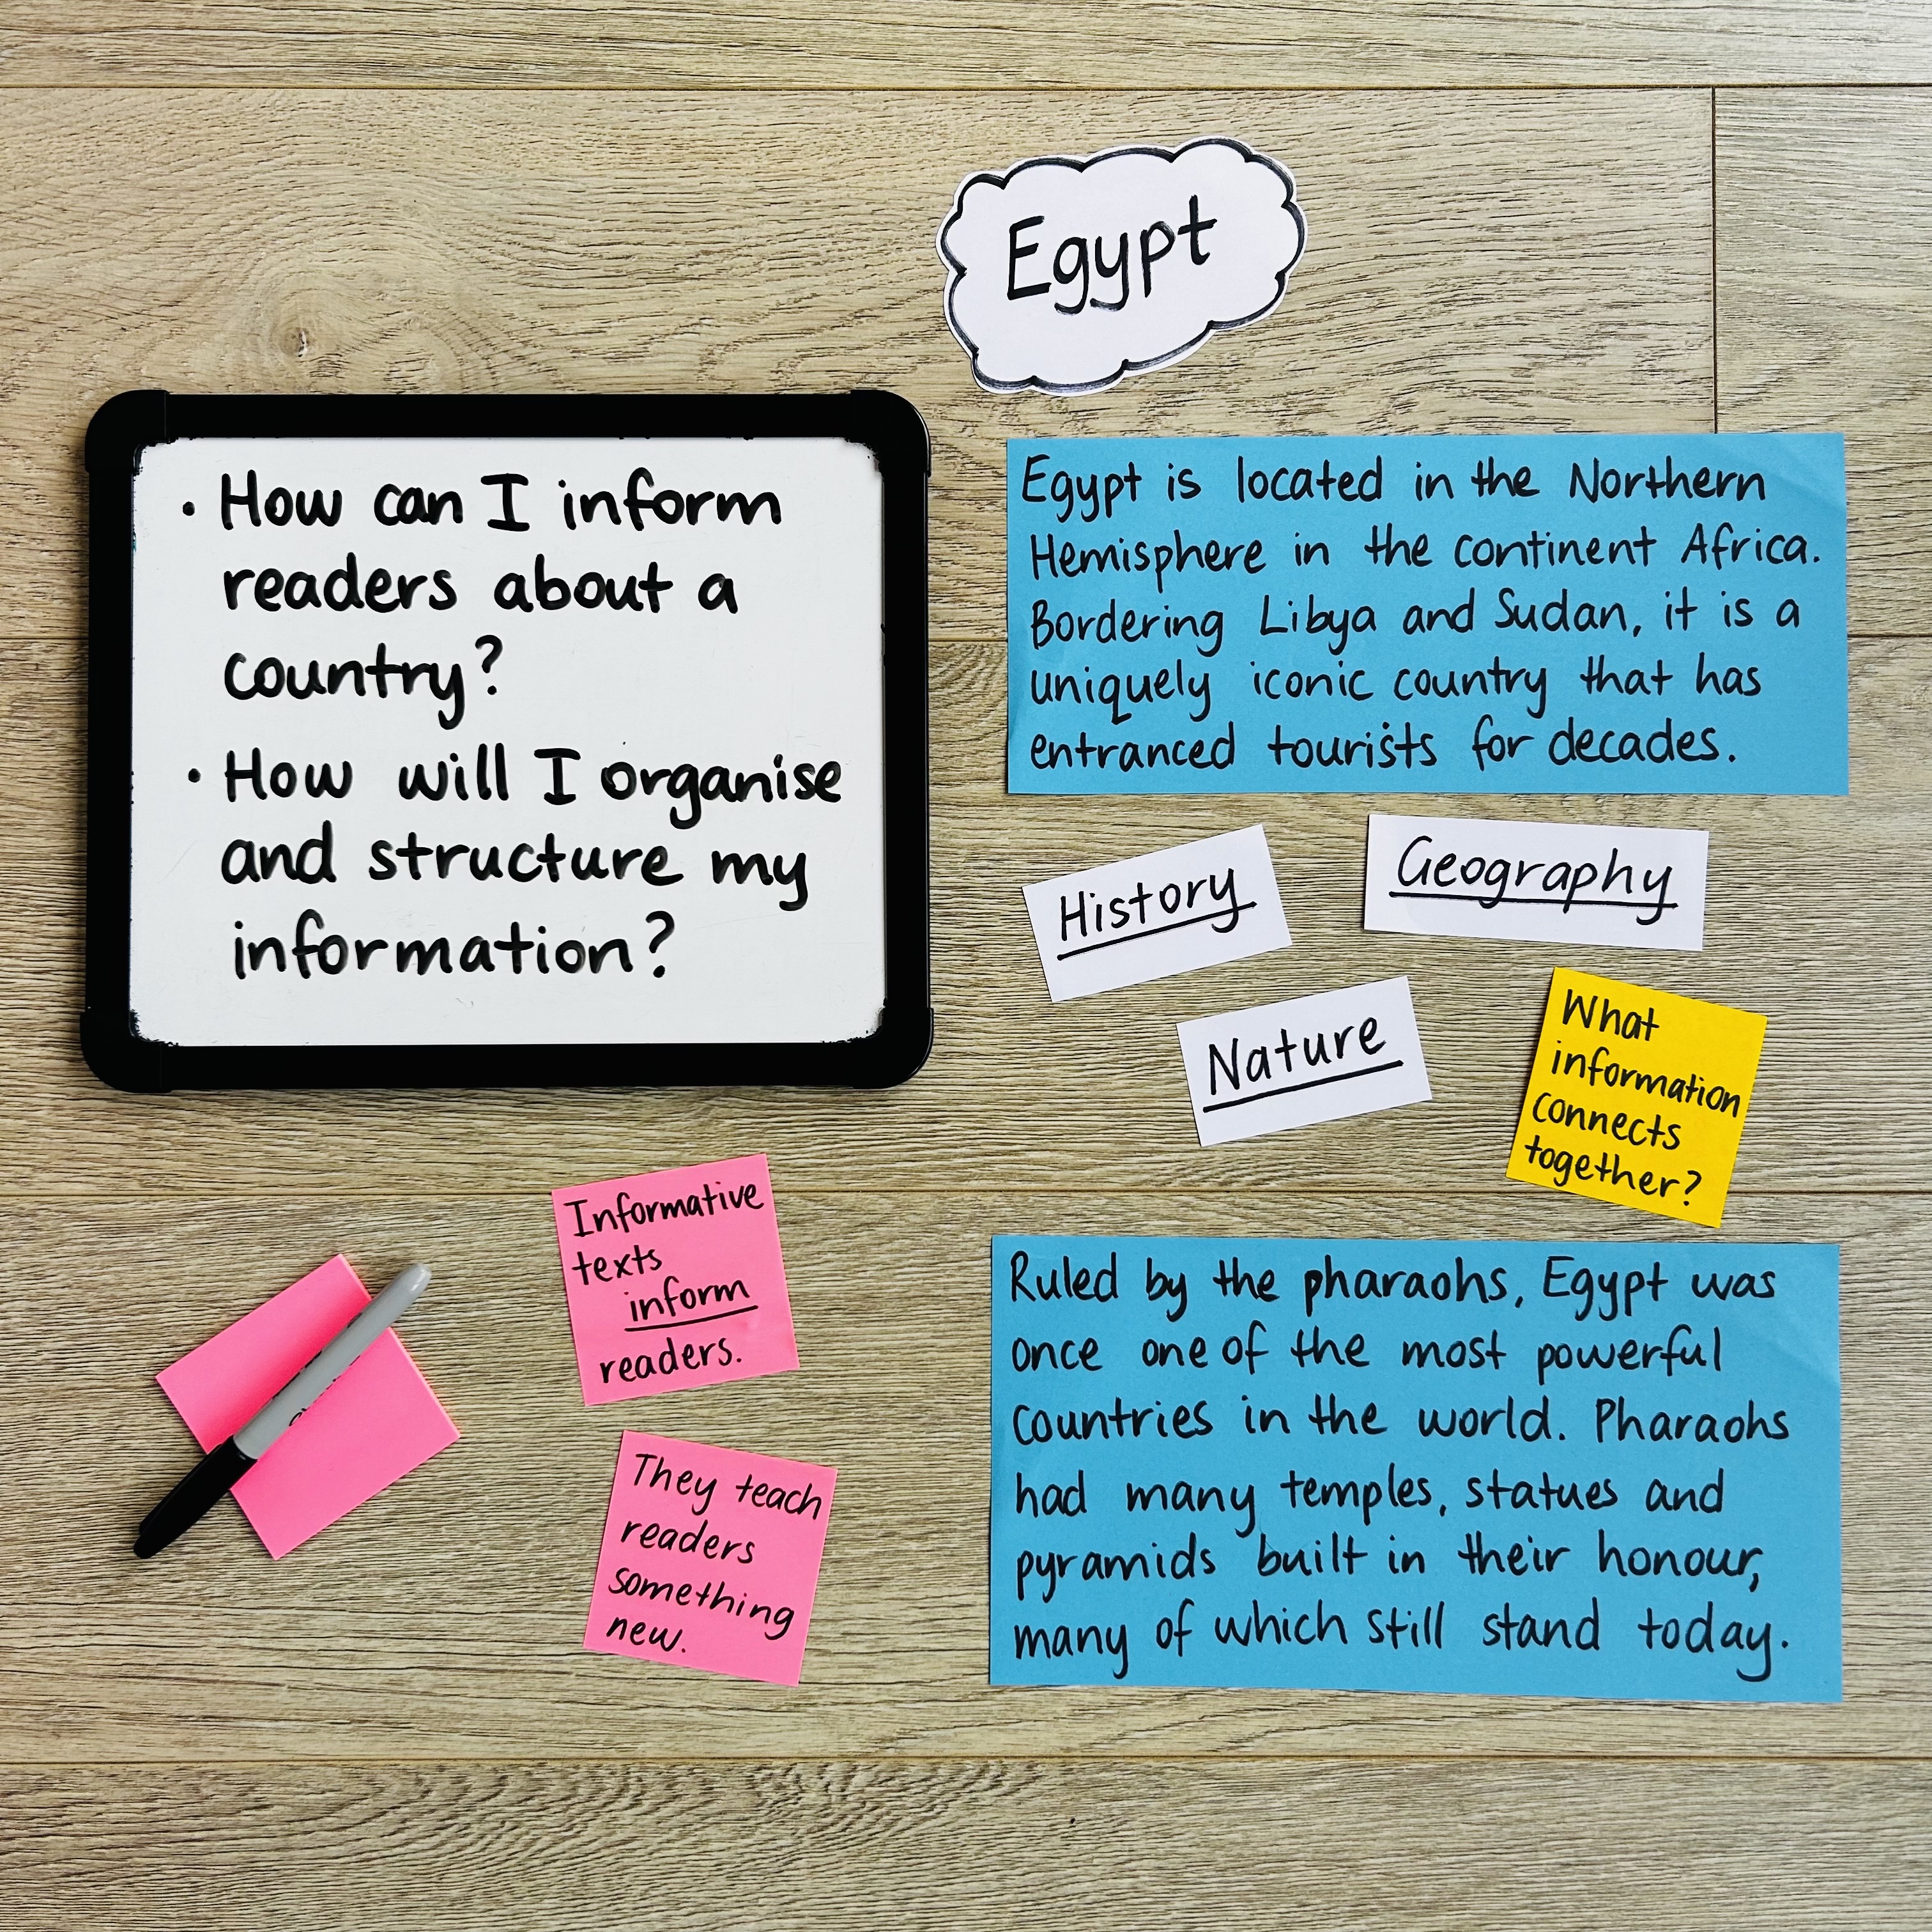 Egypt
• How can I inform
readers about a
country?
• How will I organise
and structure my
information?
Egypt is located in the Northern
Hemisphere in the continent Africa.
Bordering Libya and Sudan, it is a
uniquely iconic country that has
entranced tourists for decades.
History
Geography
Nature
What
information
connects
together?
Informative
texts
inform
readers.
They teach
readers
something
new.
Ruled by the pharaohs, Egypt was
once one of the most powerful
countries in the world. Pharaohs
had many temples, statues and
pyramids built in their honour,
many of which still stand today.